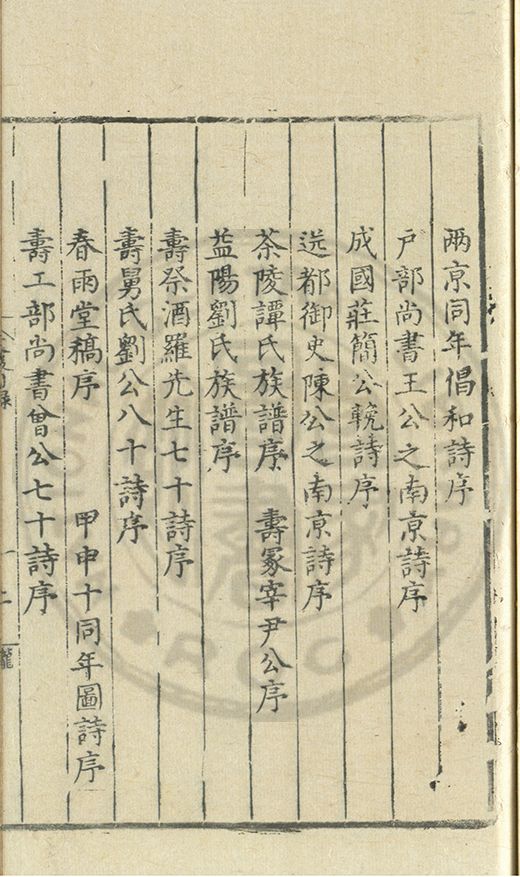 兩京同年倡和詩序
戶部尚書王公之南京詩序
成國莊簡公輓詩序
送都御史陳公之南京詩序
茶陵譚氏族譜序　壽冢宰尹公序
益陽劉氏族譜序
壽祭酒羅先生七十詩序
壽舅氏劉公八十詩序
春雨堂稿序　甲申十同年圖詩序
壽工部尚書曾公七十詩序